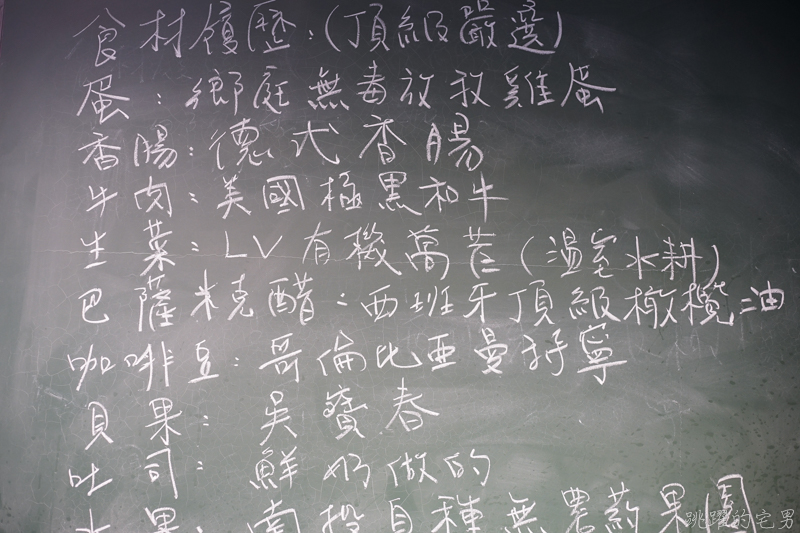 食材履歷：(頂級嚴選)
蛋：鄉庭無毒放牧雞蛋
香腸：德式香腸
牛肉：美國極黑和牛
生菜：LV有機萵苣(溫室水耕)
巴薩米克醋：西班牙頂級橄欖油
咖啡豆：哥倫比亞曼特寧
貝果：吳寶春
吐司：鮮奶做的
水果：南投自種無農藥果園
跳躍的宅男